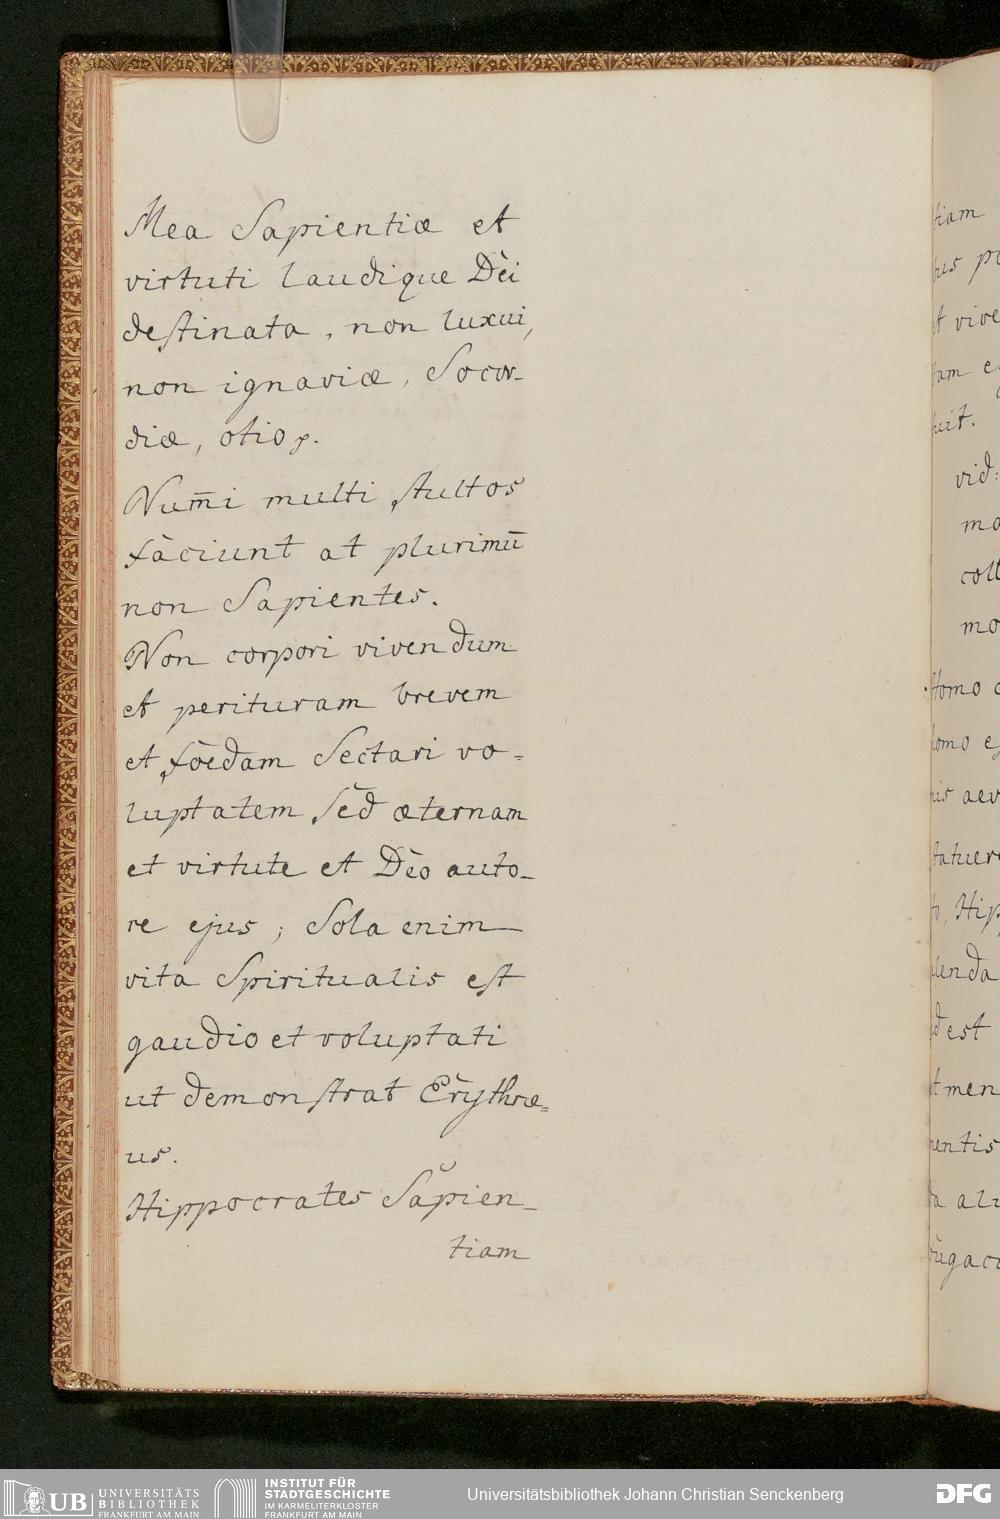 Mea Sapientiæ et
virtuti laudique Dei
destinata, non luxui,
non ignaviæ, Socor-
diæ, otio p.
Num̄i multi stultos
faciunt at plurimū
non Sapientes.
Non corpori vivendum
et perituram brevem
et foedam Sectari vo-
luptatem Sed æternam
et virtute et Deo auto-
re ejus; Sola enim
vita Spiritualis est
gaudio et voluptati
ut demonstrat Erythræ-
us.
Hippocrates Sapien-
tiam
tiam
bus
et vive
tam
uit.
vid:
coll
mo
Homo
homo
is aev
tatuer
to, Hip
lenda
d est
t men
entis
UB UNIVERSITÄTS
BIBLIOTHEK
FRANKFURT AM MAIN
INSTITUT FÜR
STADTGESCHICHTE
IM KARMELITERKLOSTER
FRANKFURT AM MAIN
Universitätsbibliothek Johann Christian Senckenberg
DFG